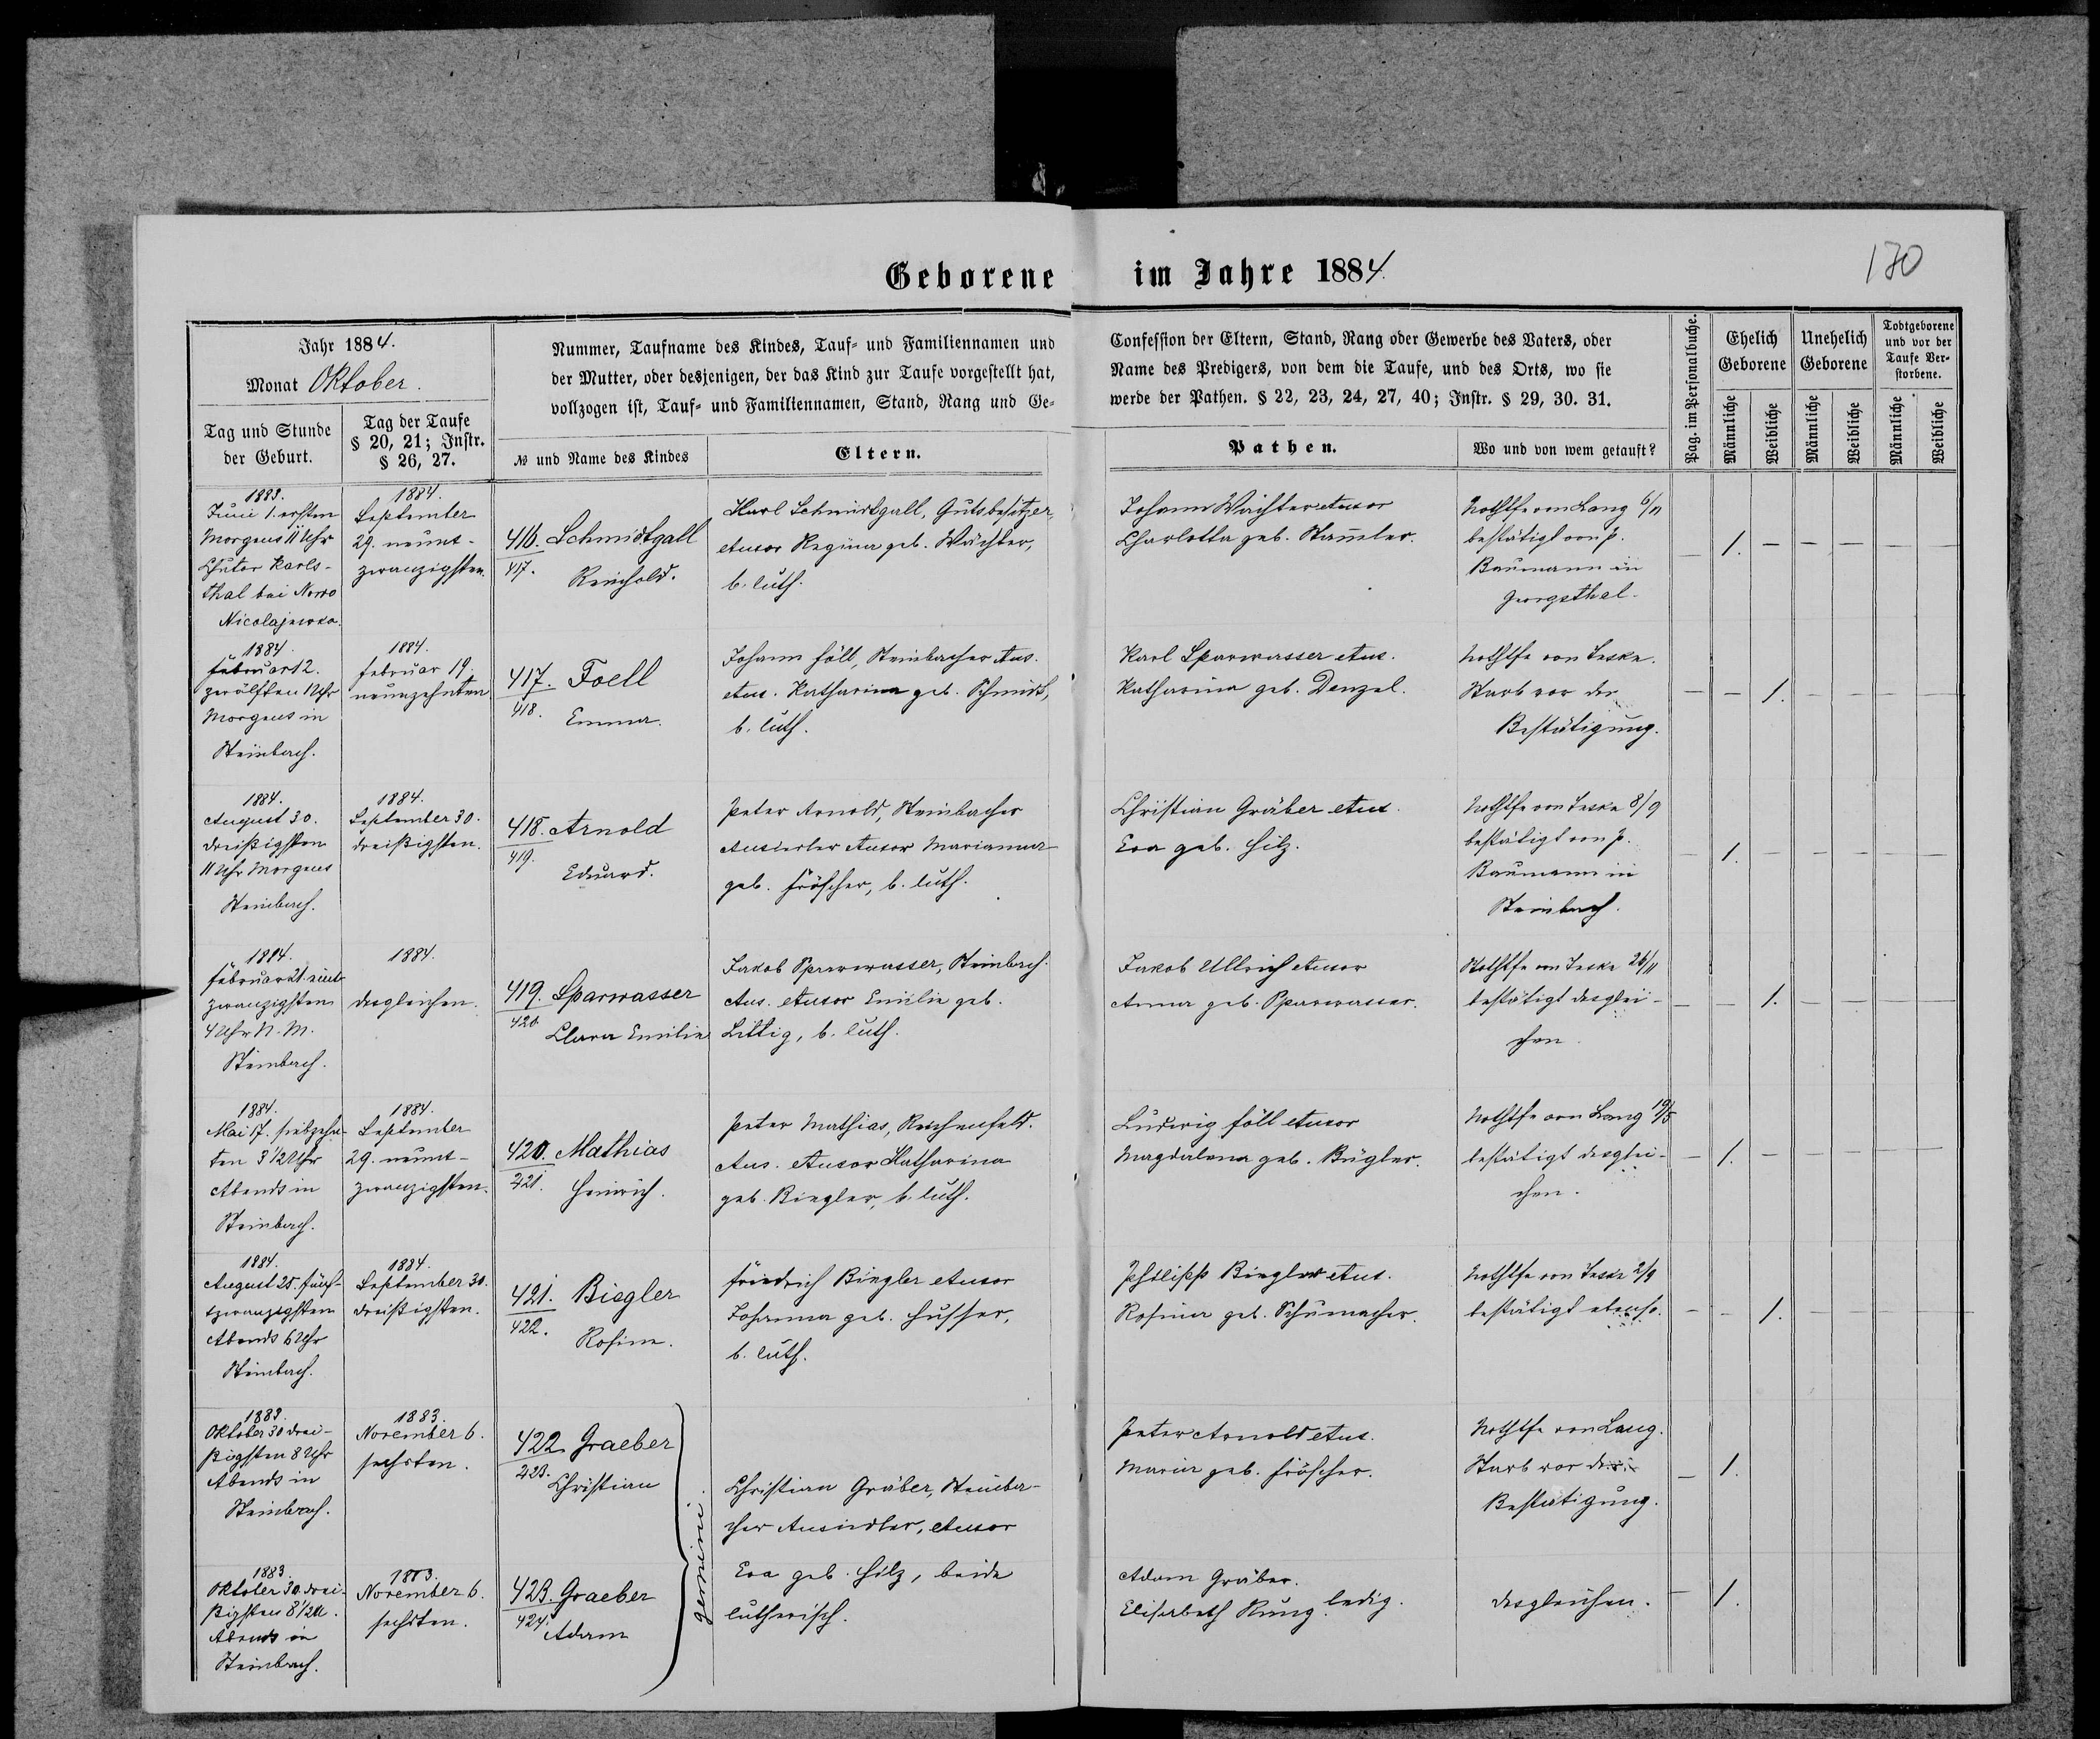 170
Geborene im Jahre 1884.
Jahr 1884.
Monat Oktober.
Tag und Stunde
der Geburt.
Tag der Taufe
§ 20, 21; Instr.
§ 26, 27.
Nummer, Taufname des Kindes, Tauf- und Familiennamen und
der Mutter, oder desjenigen, der das Kind zur Taufe vorgestellt hat,
vollzogen ist, Tauf- und Familiennamen, Stand, Rang und Ge-
№ und Name des Kindes
Eltern.
Confession der Eltern, Stand, Rang oder Gewerbe des Vaters, oder
Name des Predigers, von dem die Taufe, und des Orts, wo sie
werde der Pathen. § 22, 23, 24, 27, 40; Instr. § 29, 30. 31.
Pathen.
Wo und von wem getauft?
Pag. im Personalbuche.
Ehelich
Geborene
Unehelich
Geborene
Todtgeborene
und vor der
Taufe Ver-
storbene.
Männliche
Weibliche
Männliche
Weibliche
Männliche
Weibliche
1883.
Juni 1. ersten
Morgens 11 Uhr
Chutor Karls-
thal bei Nowo
Nicolajewka.
1884.
September
29. neunt-
zwanzigsten.
416. Schmidtgall
417.
Reinhold.
Karl Schmidtgall, Gutsbesitzer,
uxor Regina geb. Wächter,
b. luth.
Johann Wächter uxor
Charlotta geb. Stamler.
Nothtfe von Lang 6/11
bestätigt von P.
Baumann in
Georgsthal.
1.
1884.
Februar 12.
zwölften 12 Uhr
Morgens in
Steinbach.
1884.
Februar 19.
neunzehnten
417. Foell
418.
Emma.
Johann Föll, Steinbacher Ans.
ux. Katharina geb. Schmidt,
b. luth.
Karl Sparwasser ux.
Katharina geb. Denzel.
Nothtfe von Teske.
Starb vor der
Bestätigung.
1.
1884.
August 30.
dreißigsten
11 Uhr Morgens
Steinbach.
1884.
September 30.
dreißigsten.
418. Arnold
419.
Eduard.
Peter Arnold, Steinbacher
Ansiedler uxor Marianna
geb. Fröscher, b. luth.
Christian Gräber ux.
Eva geb. Hilz.
Nothtfe von Teske 8/9
bestätigt von P.
Baumann in
Steinbach.
1.
1884.
Februar 21. ein-
zwanzigsten
4 Uhr N. M.
Steinbach.
1884.
desgleichen.
419. Sparwasser
420.
Clara Emilie
Jakob Sparwasser, Steinbach.
Ans. uxor Emilie geb.
Littig, b. luth.
Jakob Ullrich uxor
Anna geb. Sparwasser.
Nothtfe von Teske 26/11
bestätigt desglei-
chen.
1.
1884.
Mai 17. siebzehn-
ten 3 1/2 Uhr
Abends in
Steinbach.
1884.
September
29. neunt-
zwanzigsten.
420. Mathias
421.
Heinrich.
Peter Mathias, Reichenfeld.
Ans. uxor Katharina
geb. Biegler, b. luth.
Ludwig Föll uxor
Magdalena geb. Bügler.
Nothtfe von Lang 19/5
bestätigt desglei-
chen.
1.
1884.
August 25. fünf-
zwanzigsten
Abends 6 Uhr
Steinbach.
1884.
September 30.
dreißigsten.
421. Biegler
422.
Rosine.
Friedrich Biegler uxor
Johanna geb. Husser,
b. luth.
Philipp Biegler ux.
Rosina geb. Schumacher.
Nothtfe von Teske 2/9
bestätigt ebenso.
1.
1883.
Oktober 30 drei-
ßigsten 8 Uhr
Abends in
Steinbach.
1883.
November 6.
sechsten.
422. Graeber
423.
Christian
gemini.
Christian Gräber, Steinba-
cher Ansiedler, uxor
Eva geb. Hilz, beide
lutherisch.
Peter Arnold ux.
Maria geb. Fröscher.
Nothtfe von Lang.
Starb vor der
Bestätigung.
1.
1883.
Oktober 30. drei-
ßigsten 8 1/2 U.
Abends in
Steinbach.
1883.
November 6.
sechsten.
423. Graeber
424.
Adam
Adam Gräber.
Elisabeth Rung. ledig.
desgleichen.
1.